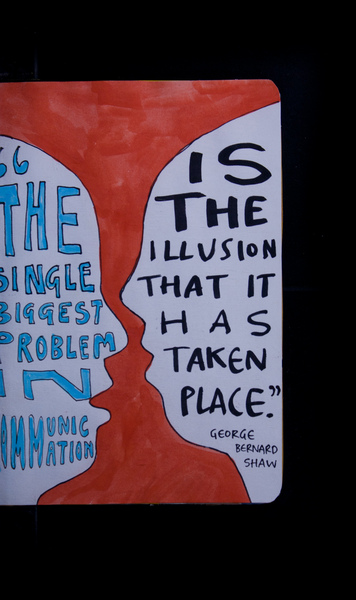 “
THE
SINGLE
BIGGEST
PROBLEM
IN
COMMUNIC
ATION
IS
THE
ILLUSION
THAT IT
HAS
TAKEN
PLACE.”
GEORGE
BERNARD
SHAW